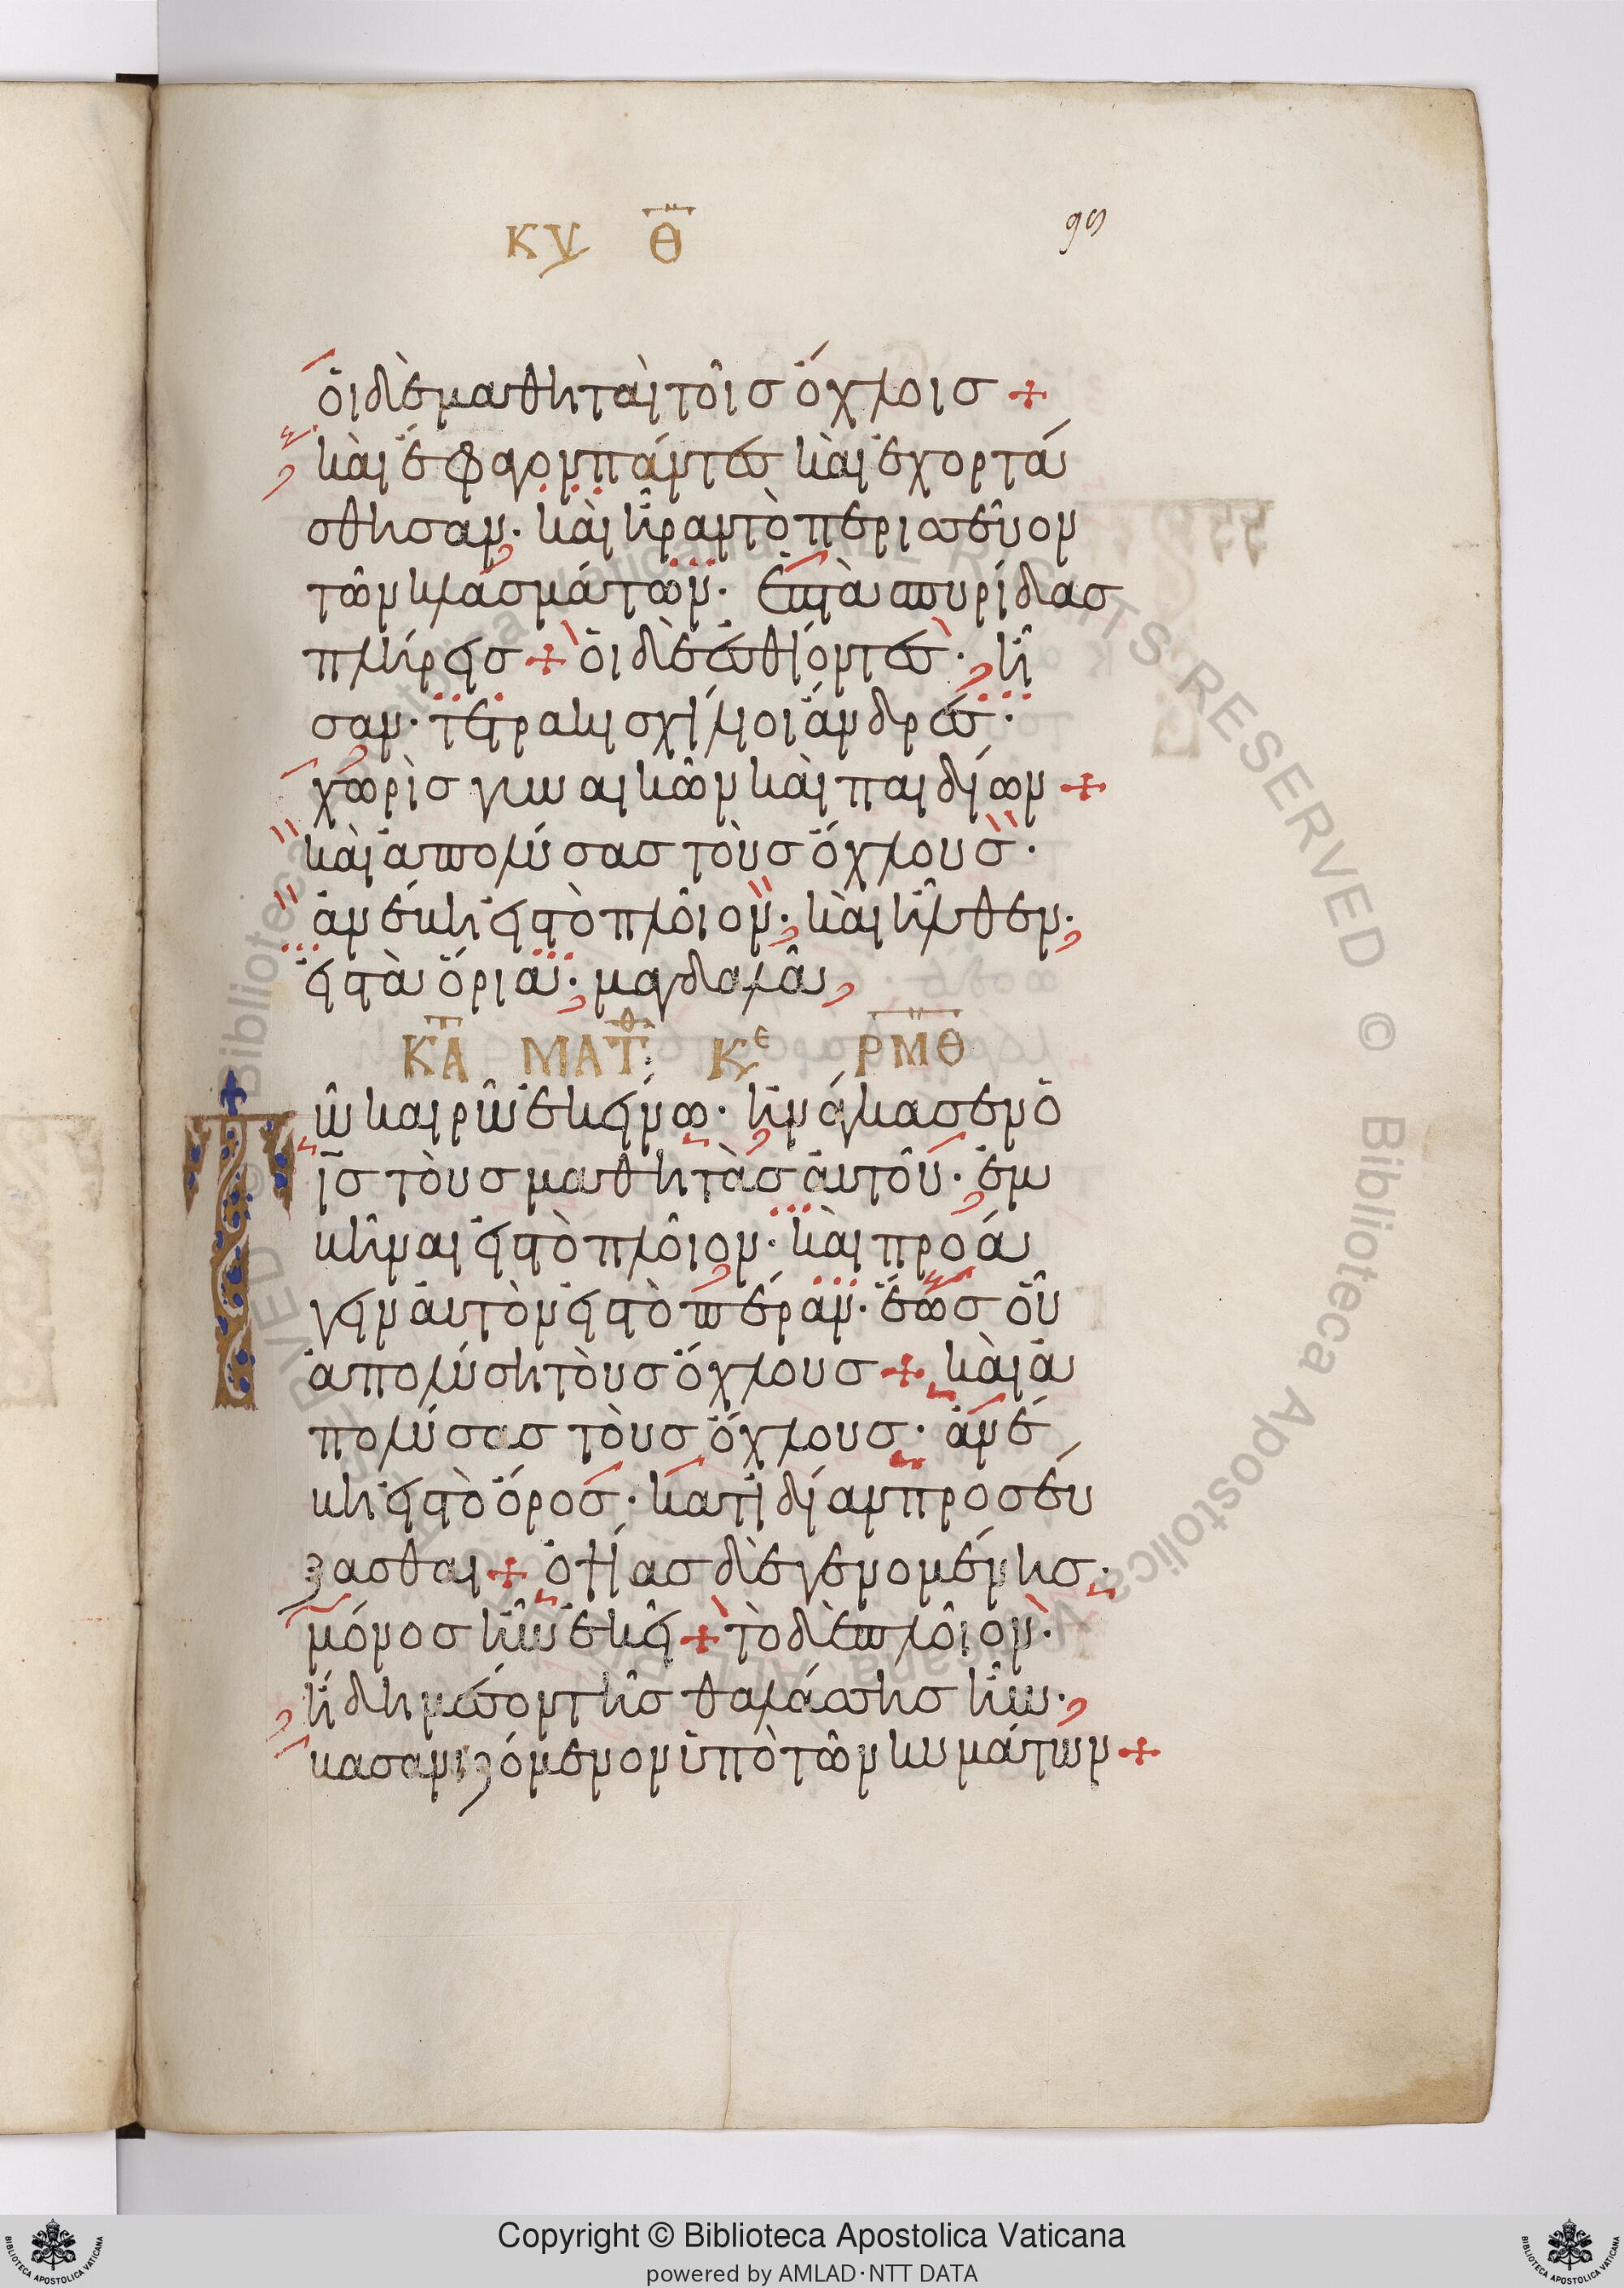 ΚΥ Θ
95
ὁι δὲ μαθηταὶ τοῖσ ὄχλοισ +
καὶ ἔφαγον πάντεσ καὶ ἐχορτά
σθησαν· καὶ ἦραν τὸ περισσεῦον
τῶν κλασμάτων· ἑπτὰ σπυρίδασ
πλήρεισ + ὁι δὲ ἐσθίοντεσ· ἦ
σαν· τετρακισχίλιοι ἄνδρεσ·
χωρὶσ γυναικῶν καὶ παιδίων +
καὶ ἀπολύσασ τοὺσ ὄχλουσ·
ἀνέβη εἰσ τὸ πλοῖον· καὶ ἦλθεν·
εἰσ τὰ ὅρια· μαγδαλά
Κ͞Α ΜΑΤΘ ΚΕ ΡΜΘ
Τῶ καιρῶ ἐκείνω· ἠνάγκασεν ὁ
ι͞σ τοὺσ μαθητὰσ ἀυτοῦ· ἐμ
βῆναι εἰσ τὸ πλοῖον· καὶ προά
γειν ἀυτὸν εἰσ τὸ πέραν· ἕωσ οὗ
ἀπολύση τοὺσ ὄχλουσ + καὶ ἀ
πολύσασ τοὺσ ὄχλουσ· ἀνέ
βη εἰσ τὸ ὄροσ· κατιδίαν προσεύ
ξασθαι + ὀψίασ δὲ γενομένησ·
μόνοσ ἦν ἐκεῖ + τὸ δὲ πλοῖον·
ἤδη μέσον τῆσ θαλάσσησ ἦν·
βασανιζόμενον ὑπὸ τῶν κυμάτων +
Copyright © Biblioteca Apostolica Vaticana
powered by AMLAD·NTT DATA